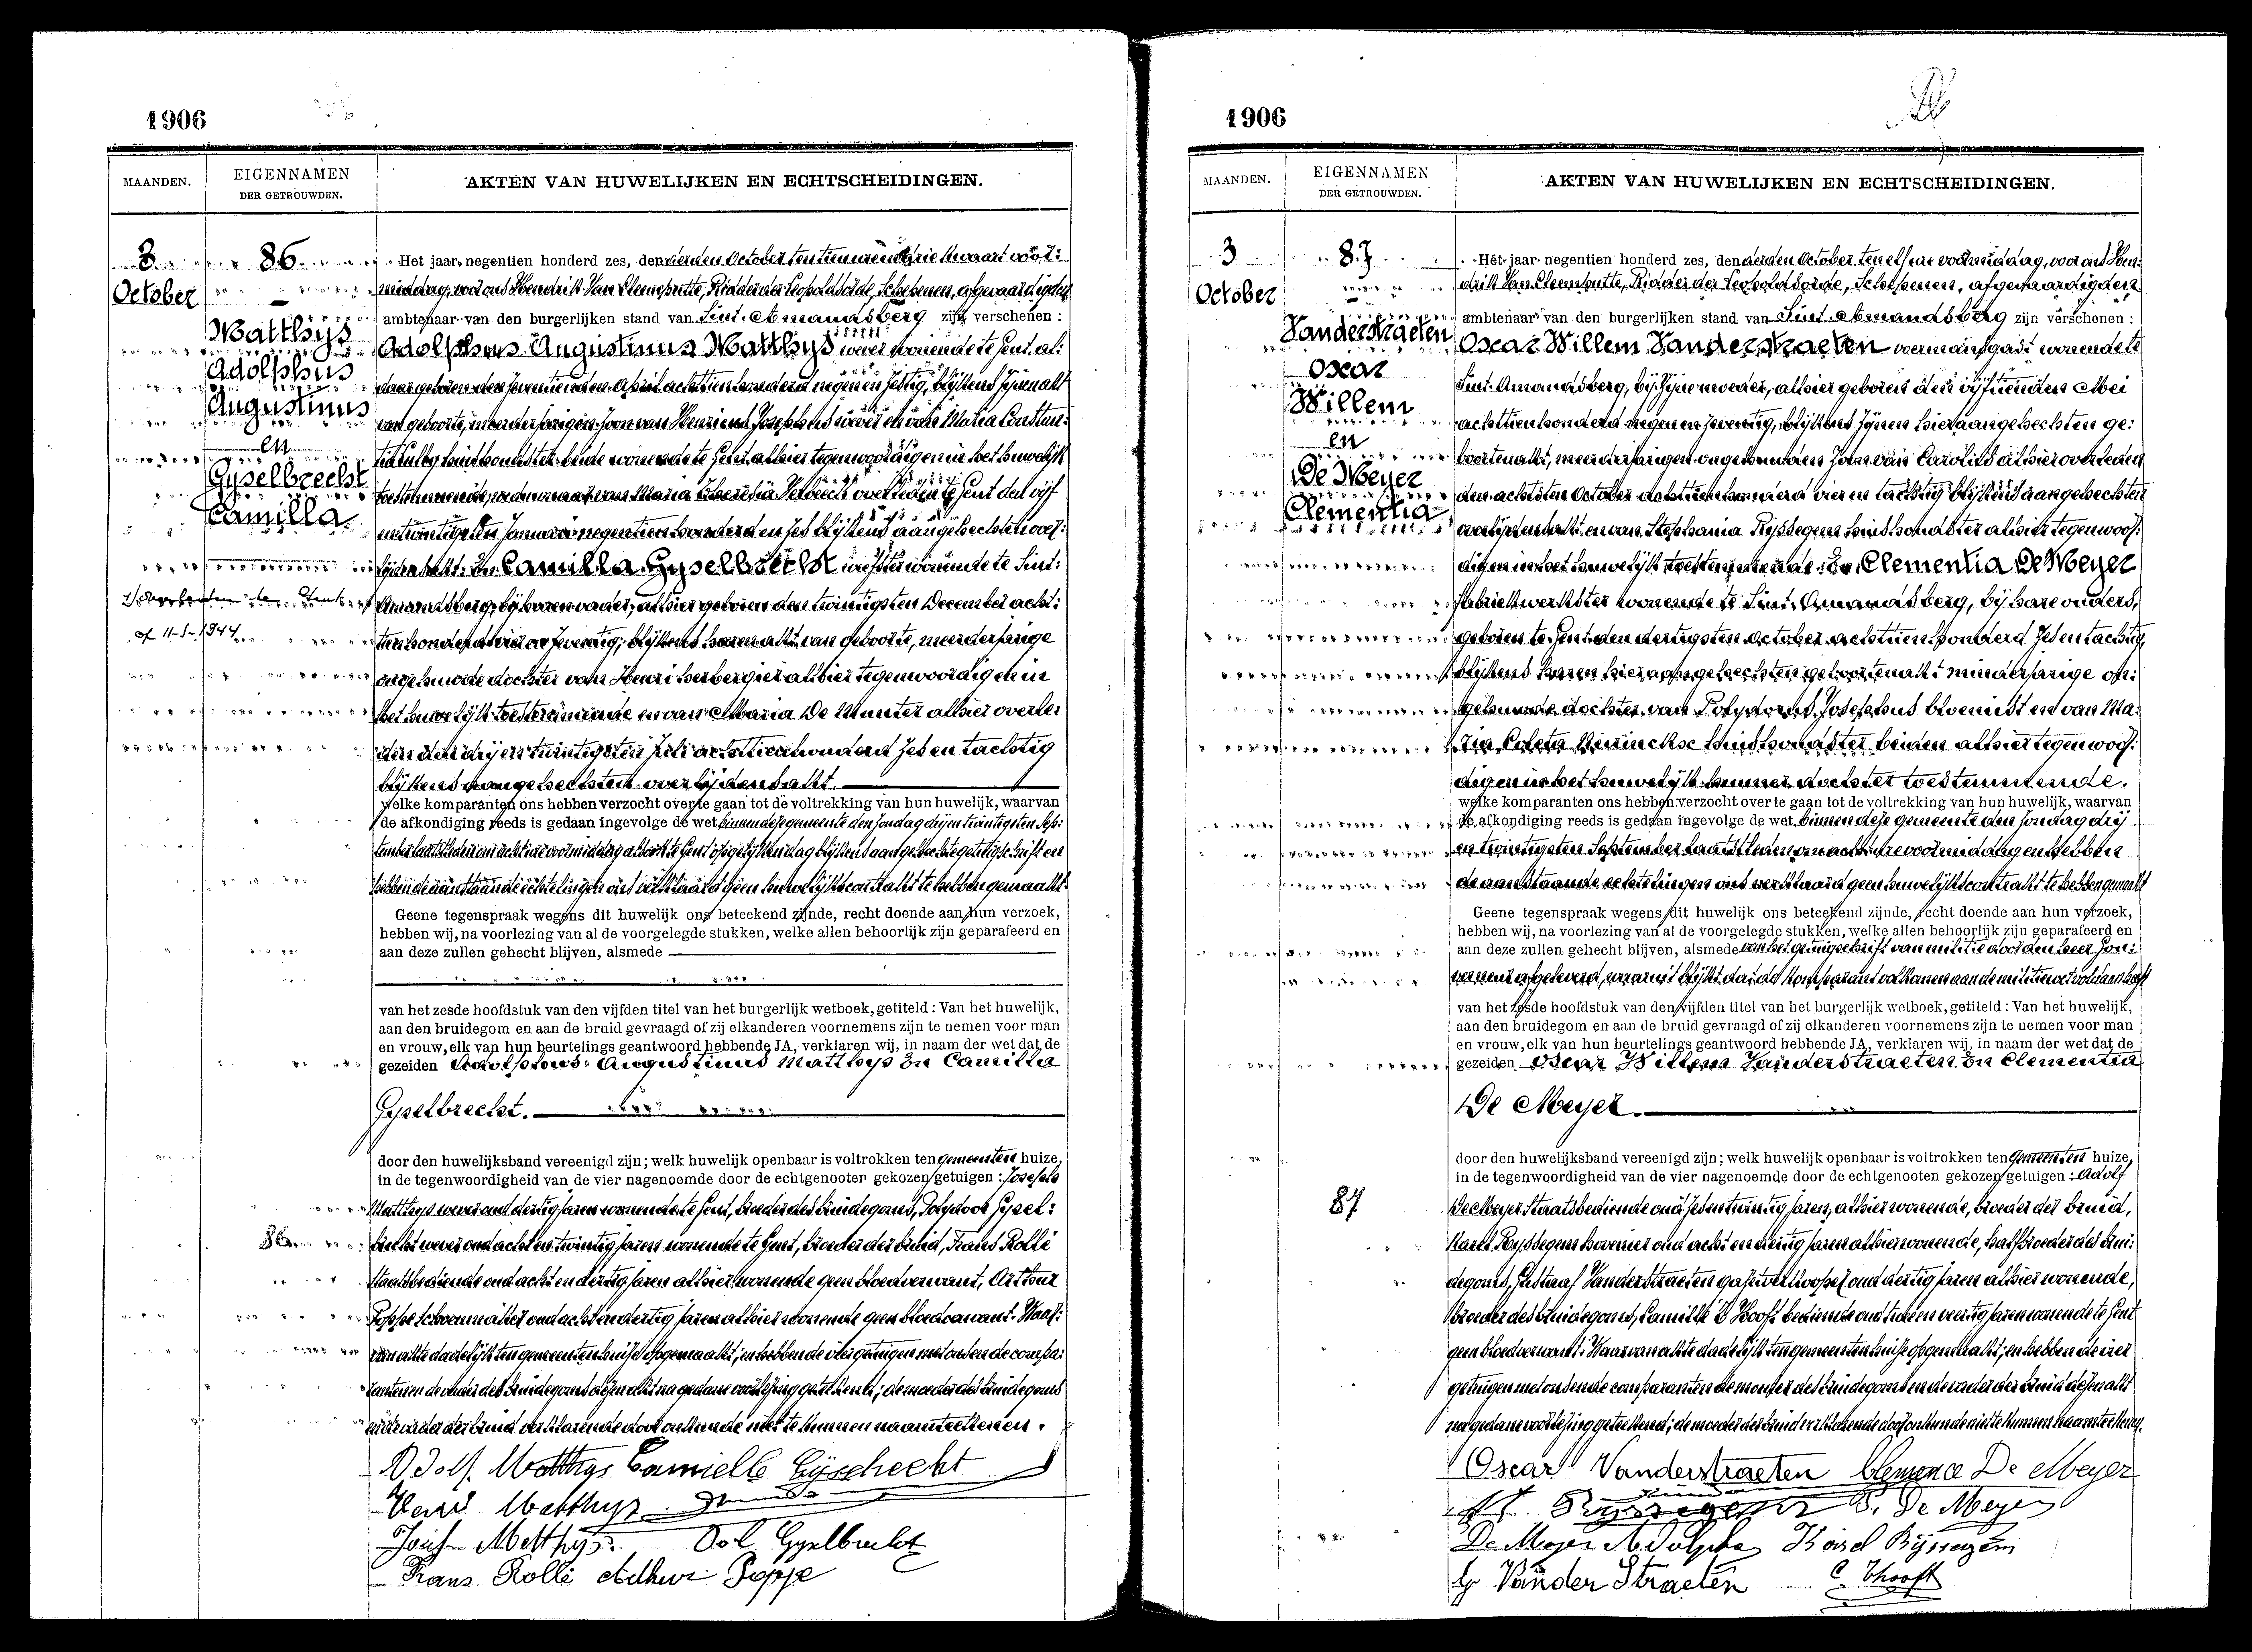 1906
MAANDEN.
EIGENNAMEN
DER GETROUWDEN.
AKTEN VAN HUWELIJKEN EN ECHTSCHEIDINGEN.
3
October
86
Matthijs
Adolphus
Augustinus
en
Gyselbrecht
Camilla
Het jaar negentien honderd zes, den derden October ten tien uren drie kwaart voor:
middag, voor ons Hendrik Van Cleemputte, Ridder der Leopoldsorde, Schepenen, afgevaardigden
ambtenaar van den burgerlijken stand van Sint. Amandsberg zijn verschenen :
Adolphus Augustinus Matthijs wever wonende te Gent al:
daar geboren den seventienden April achttienhonderd negen en sestig, blijkens sijnen akt
van geboorte, meerderjarigen soon van Henricus Josephus wever en van Maria Constan:
huishoudster beide wonende te Gent alhier tegenwoordig en in het huwelijk
toestemmende, weduwnaar van Maria Theresia overleden te Gent den vijf
entwintigsten Januari negentienhonderd en ses blijkens aangehechten over:
lijdensakt. En Camilla Gyselbrecht wonende te Sint:
Amandsberg, bij haren vader, alhier geboren den twintigsten December acht:
tienhonderd vier en seventig, blijkens haren akt van geboorte, meerderjarige
ongehuwde dochter van Henri herbergier alhier tegenwoordig en in
het huwelijk toestemmende en van Maria De Munter alhier overle:
den den drij en twintigsten Juli achttienhonderd ses en tachtig
blijkens aangehechten overlijdensakt.
of 11-1-1944
welke komparanten ons hebben verzocht over te gaan tot de voltrekking van hun huwelijk, waarvan
de afkondiging reeds is gedaan ingevolge de wet, binnen dese gemeente den sondag drij en twintigsten Sep:
tember laatstleden om acht ure voormiddag alsook te Gent op gelijken dag blijkens aangehechte getuigschrift en
hebben de aanstaande echtelingen ons verklaard geen huwelijkscontrakt te hebben gemaakt.
Geene tegenspraak wegens dit huwelijk ons beteekend zijnde, recht doende aan hun verzoek,
hebben wij, na voorlezing van al de voorgelegde stukken, welke allen behoorlijk zijn geparafeerd en
aan deze zullen gehecht blijven, alsmede
van het zesde hoofdstuk van den vijfden titel van het burgerlijk wetboek, getiteld : Van het huwelijk,
aan den bruidegom en aan de bruid gevraagd of zij elkanderen voornemens zijn te nemen voor man
en vrouw, elk van hun beurtelings geantwoord hebbende JA, verklaren wij, in naam der wet dat de
gezeiden Adolphus Augustinus Matthijs En Camilla
Gyselbrecht.
door den huwelijksband vereenigd zijn; welk huwelijk openbaar is voltrokken ten gemeenten huize,
in de tegenwoordigheid van de vier nagenoemde door de echtgenooten gekozen getuigen : Joseph
Matthys wever oud dertig jaren wonende te Gent, broeder des bruidegoms, Polydoor Gysel:
brecht wever oud acht en twintig jaren wonende te Gent, broeder der bruid, Frans Rolli
Staatsbediende oud acht en dertig jaren alhier wonende geen bloedverwant, Arthur
Poppe schoenmaker oud acht en dertig jaren alhier wonende geen bloedverwant. Waar:
van akte dadelijk ten gemeenten huise opgemaakt, en hebben de vier getuigen met ons en de compa:
ranten en de vader des bruidegoms desen akt na gedane voorlesing geteekend; de moeder des bruidegoms
en de vader der bruid verklarende door onkunde niet te kunnen naamteekenen.
86
Adolf. Matthys Camielle Gijselrecht
Henri Matthys
Josef Matthys. Pol Gyselbrecht
Frans Rolli Arthur Poppe
1906
MAANDEN.
EIGENNAMEN
DER GETROUWDEN.
AKTEN VAN HUWELIJKEN EN ECHTSCHEIDINGEN.
3
October
87
Vanderstraeten
Oscar
Willem
en
De Meyer
Clementia
Het jaar negentien honderd zes, den derden October ten elf ure voormiddag, voor ons Hen:
drik Van Cleemputte, Ridder der Leopoldsorde, Schepenen, afgevaardigden
ambtenaar van den burgerlijken stand van Sint. Amandsberg zijn verschenen :
Oscar Willem Vanderstraeten wonende te
Sint. Amandsberg, bij sijne moeder, alhier geboren den vijftienden Mei
achttienhonderd negen en seventig, blijkens sijnen hieraangehechten ge:
boortenakt, meerderjarigen ongehuwden soon van Carolus alhier overleden
den achtsten October achttienhonderd vier en tachtig blijkens aangehechten
overlijdensakt en van Stephania Ryssegem huishoudster alhier tegenwoor:
dig en in het huwelijk toestemmende. En Clementia De Meyer
fabriekwerkster wonende te Sint. Amandsberg, bij hare ouders,
geboren te Gent den dertigsten October achttienhonderd ses en tachtig,
blijkens haren hieraangehechten geboortenakt minderjarige on:
gehuwde dochter van Polydorus Josephus bloemist en van Ma:
ria Coleta huishoudster beiden alhier tegenwoor:
dig en in het huwelijk hunner dochter toestemmende.
welke komparanten ons hebben verzocht over te gaan tot de voltrekking van hun huwelijk, waarvan
de afkondiging reeds is gedaan ingevolge de wet, binnen dese gemeente den sondag drij
en twintigsten September laatstleden om acht ure voormiddag en hebben
de aanstaande echtelingen ons verklaard geen huwelijkscontrakt te hebben gemaakt
Geene tegenspraak wegens dit huwelijk ons beteekend zijnde, recht doende aan hun verzoek,
hebben wij, na voorlezing van al de voorgelegde stukken, welke allen behoorlijk zijn geparafeerd en
aan deze zullen gehecht blijven, alsmede van het getuigschrift van militie door den heer Gou:
verneur afgeleverd, waaruit blijkt dat de komparant volkomen aan de militiewet voldaan heeft
van het zesde hoofdstuk van den vijfden titel van het burgerlijk wetboek, getiteld : Van het huwelijk,
aan den bruidegom en aan de bruid gevraagd of zij elkanderen voornemens zijn te nemen voor man
en vrouw, elk van hun beurtelings geantwoord hebbende JA, verklaren wij, in naam der wet dat de
gezeiden Oscar Willem Vanderstraeten En Clementia
De Meyer.
door den huwelijksband vereenigd zijn; welk huwelijk openbaar is voltrokken ten gemeenten huize,
in de tegenwoordigheid van de vier nagenoemde door de echtgenooten gekozen getuigen : Adolf
87
De Meyer Staatsbediende oud ses en twintig jaren, alhier wonende, broeder der bruid,
Karel Ryssegem hovenier oud acht en dertig jaren alhier wonende, halfbroeder des brui:
degoms, Gustaaf Vanderstraeten oud dertig jaren alhier wonende,
broeder des bruidegoms, Camille D'Hooft bediende oud twee en veertig jaren wonende te Gent
geen bloedverwant. Waarvan akte dadelijk ten gemeenten huise opgemaakt; en hebben de vier
getuigen met ons en de comparanten de moeder des bruidegoms en de vader der bruid desen akt
na gedane voorlesing geteekend; de moeder der bruid verklarende door onkunde niet te kunnen naamteekenen.
Oscar Vanderstraeten Clemence De Meyer
P. De Meyer
De Meyer Adolphe Karel Rijssegem
G Vander Straeten C. Dhooft